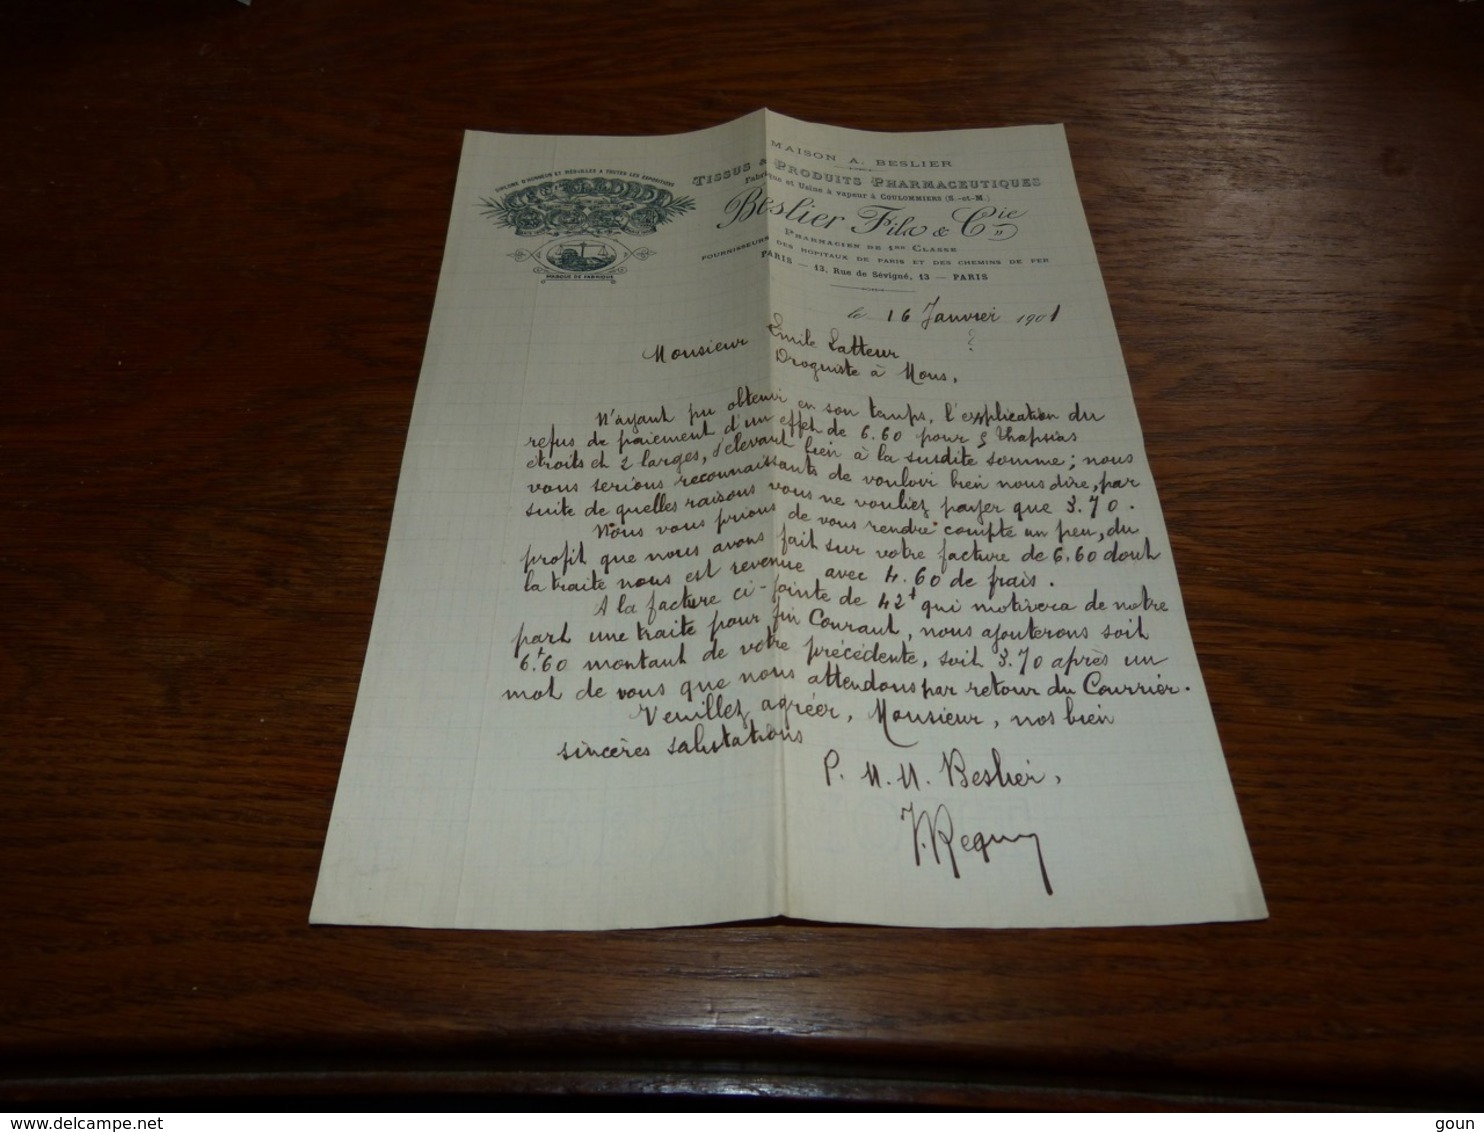 MAISON A. BESLIER
DIPLOME D'HONNEUR ET MÉDAILLES A TOUTES LES EXPOSITIONS
TISSUS & PRODUITS PHARMACEUTIQUES
Fabrique et Usine à vapeur à COULOMMIERS (S.-et-M.)
Beslier Fils & Cie
PHARMACIEN DE 1RE CLASSE
FOURNISSEURS DES HOPITAUX DE PARIS ET DES CHEMINS DE FER
MARQUE DE FABRIQUE
PARIS — 13, Rue de Sévigné, 13 — PARIS
le 16 Janvier 1901
Monsieur Emile Latteur
Droguiste à Mons,
N'ayant pu obtenir en son temps, l'explication du
refus de paiement d'un effet de 6.60 pour 5 thapsias
étroits et 2 larges, s'élevant bien à la susdite somme; nous
vous serions reconnaissants de vouloir bien nous dire, par
suite de quelles raisons vous ne vouliez payer que 3.70.
Nous vous prions de vous rendre compte un peu, du
profit que nous avons fait sur votre facture de 6.60 dont
la traite nous est revenue avec 4.60 de frais.
A la facture ci-jointe de 42f qui motivera de notre
part une traite pour fin Courant, nous ajouterons soit
6f.60 montant de votre précédente, soit 3.70 après un
mot de vous que nous attendons par retour du Courrier.
Veuillez agréer, Monsieur, nos bien
sincères salutations
P. M. M. Beslier,
goun